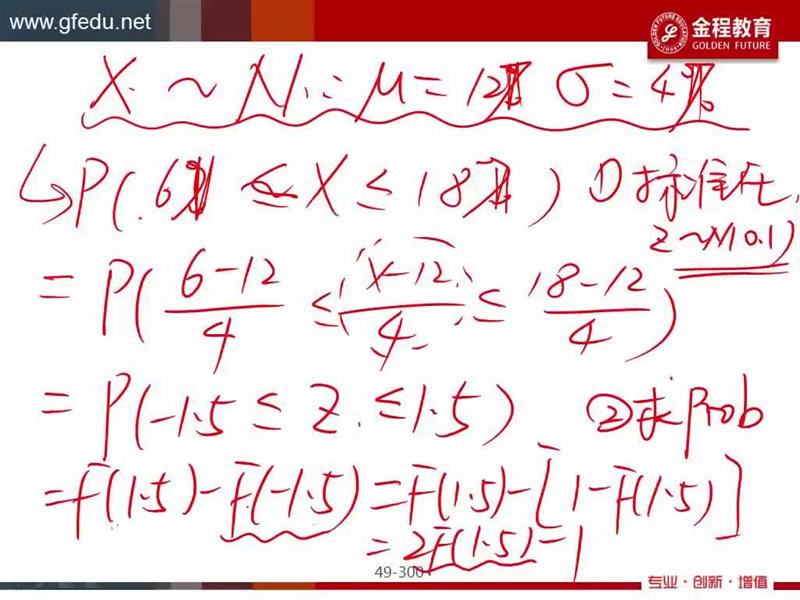 www.gfedu.net
金程教育
GOLDEN FUTURE
X ~ N: μ = 12% σ = 4%
↳ P(6% ≤ X ≤ 18%) ① 标准化,
Z ~ N(0.1)
= P( (6-12)/4 ≤ (X-12)/4 ≤ (18-12)/4 )
= P(-1.5 ≤ Z ≤ 1.5) ② 求 prob
= F(1.5) - F(-1.5) = F(1.5) - [1 - F(1.5)]
= 2F(1.5) - 1
49-300
专业·创新·增值